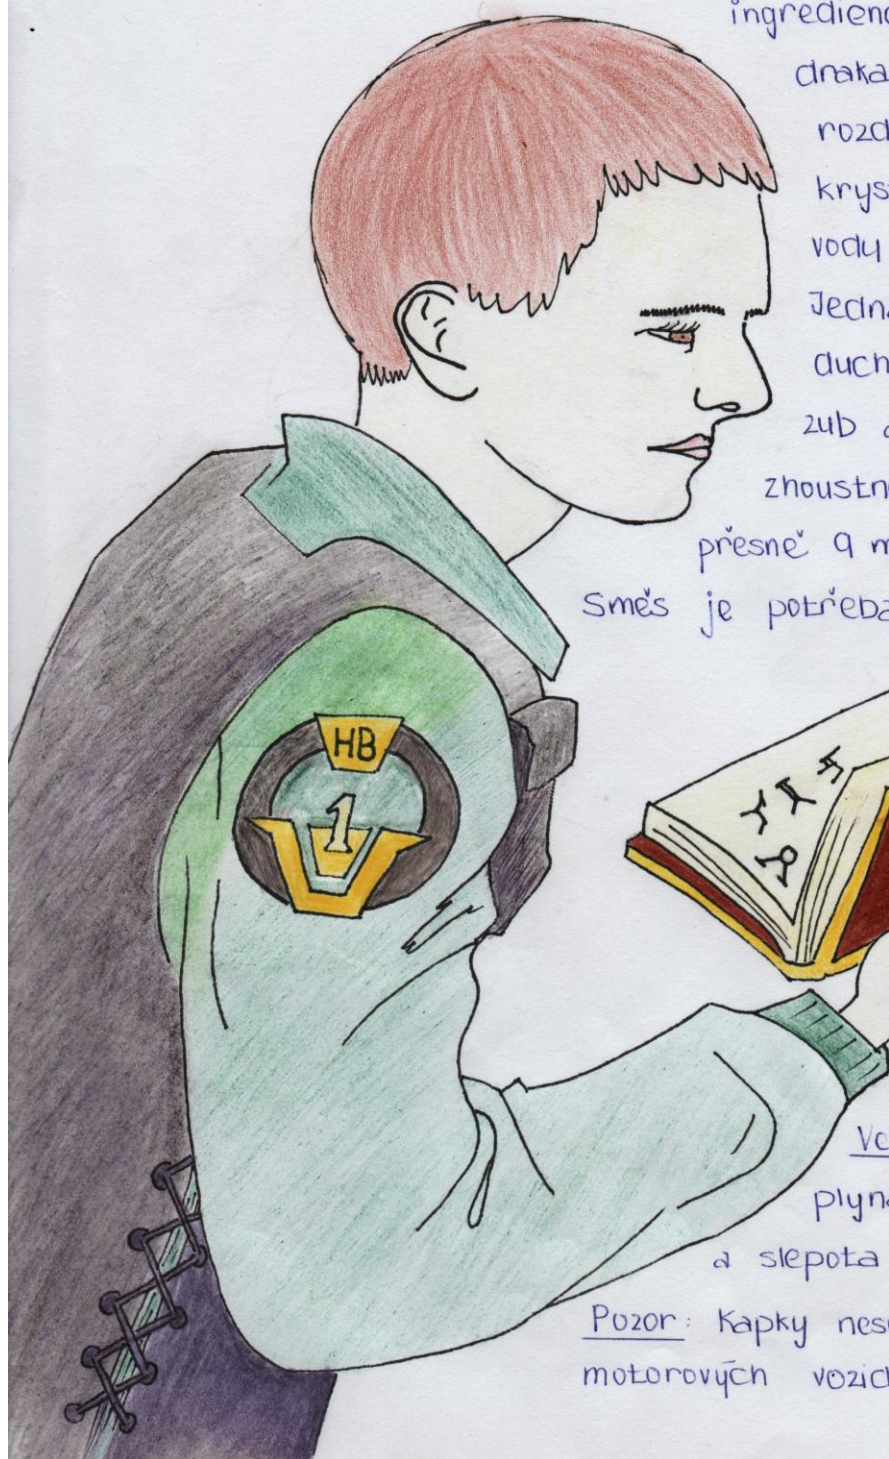 ingredienc
draka
rozd
krys
vody
Jedna
duch
zub
zhoustn
přesně 9 m
Směs je potřeba
HB
1
Ve
plyn
a slepota
Pozor: Kapky nes
motorových vozid